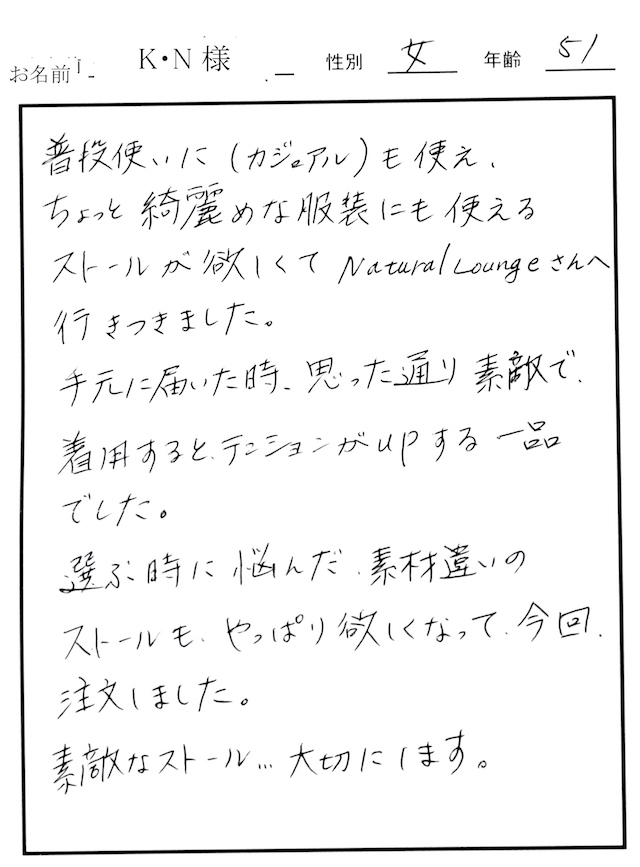 お名前 K・N 様 性別 女 年齢 51
普段使いに（カジュアル）も使え、
ちょっと綺麗めな服装にも使える
ストールが欲しくて Natural Loungeさんへ
行きつきました。
手元に届いた時、思った通り素敵で、
着用すると、テンションがupする一品
でした。
選ぶ時に悩んだ、素材違いの
ストールも、やっぱり欲しくなって、今回、
注文しました。
素敵なストール…大切にします。